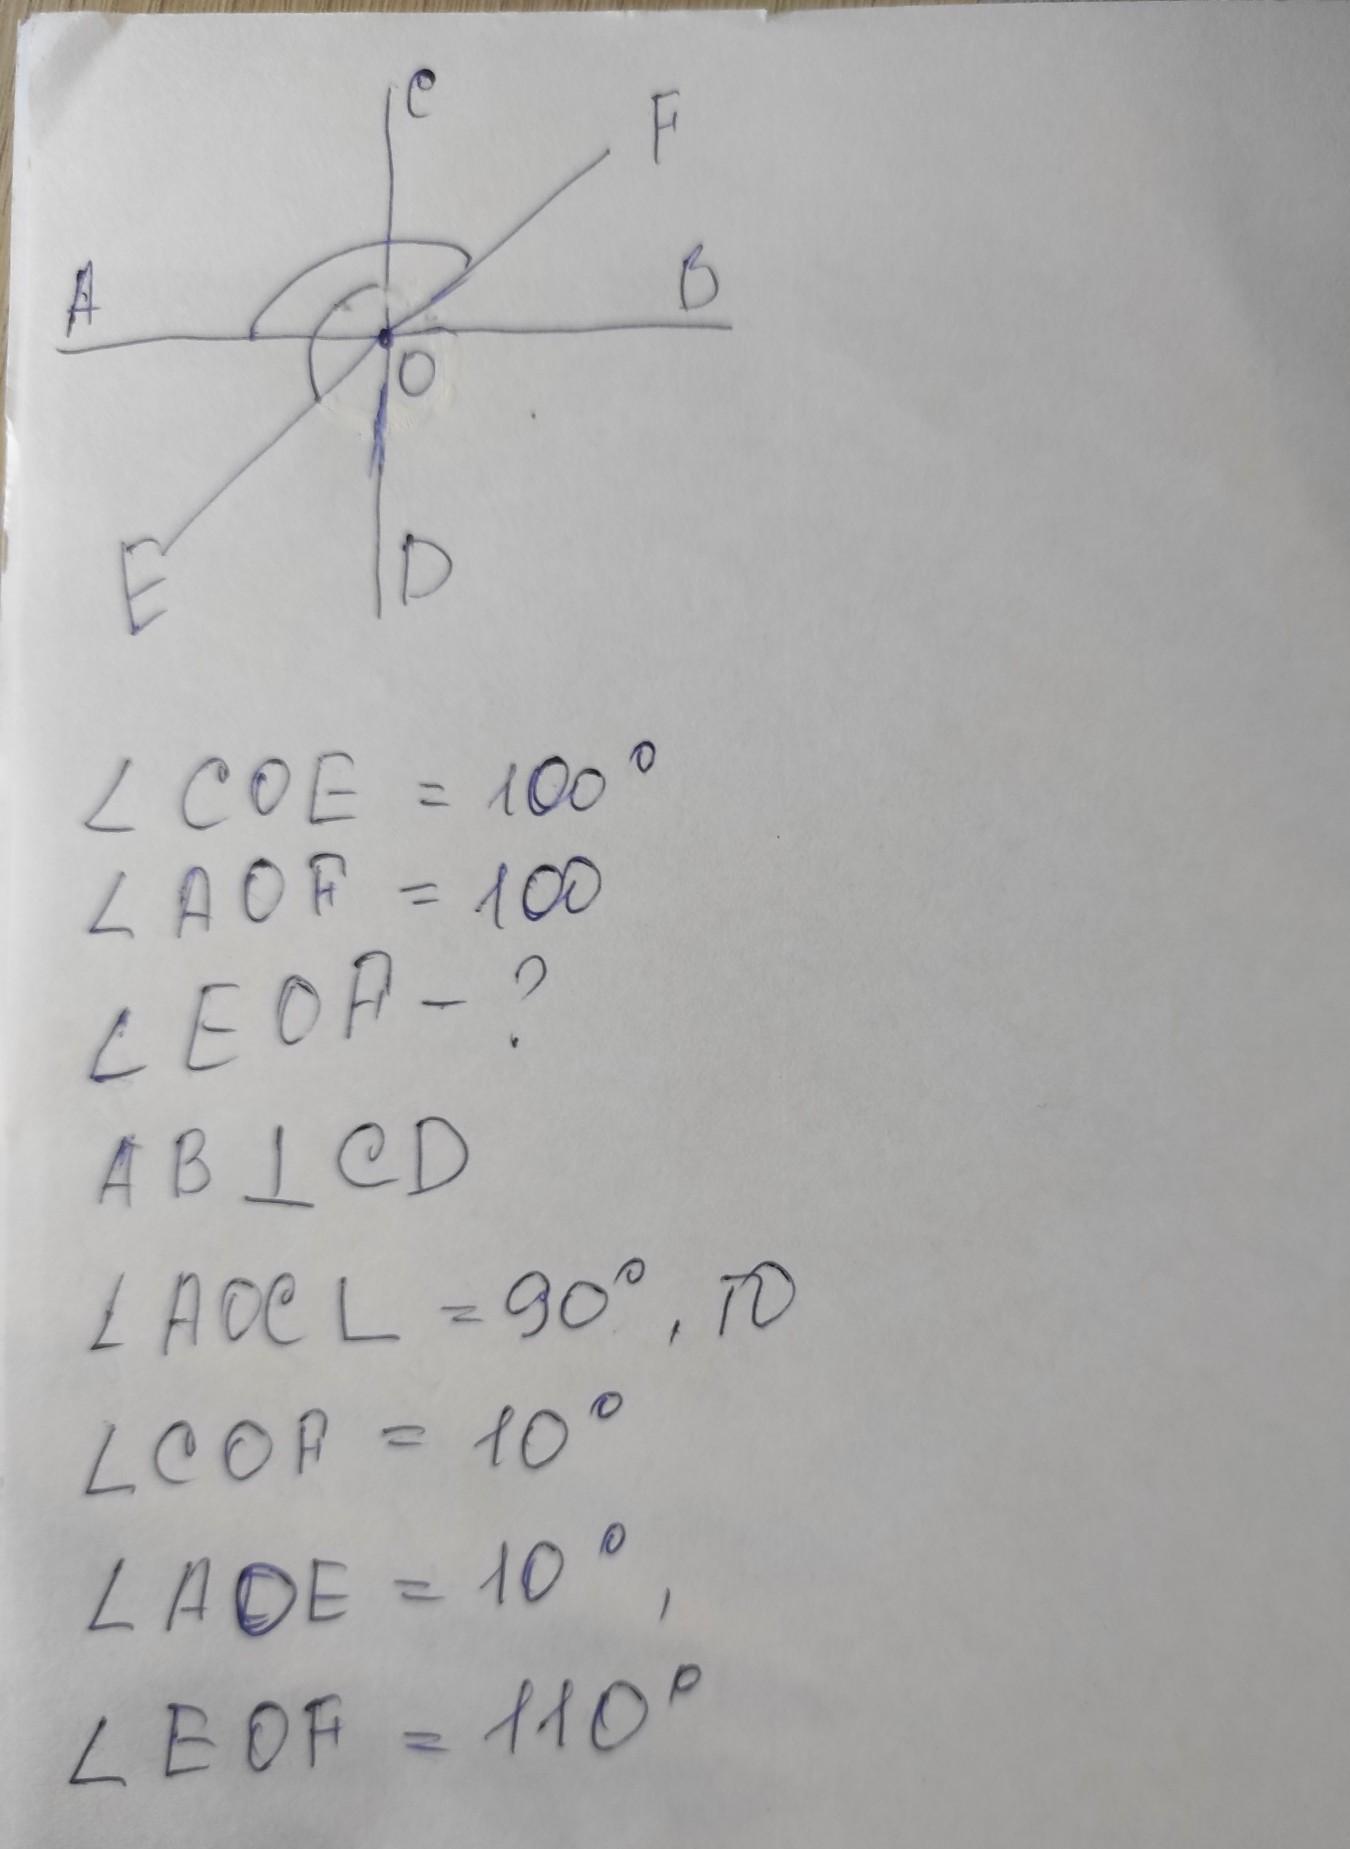 C
F
A
B
O
E
D
∠ COE = 100°
∠ AOF = 100
∠ EOF - ?
AB ⊥ CD
∠ AOC L = 90°, то
∠ COF = 10°
∠ AOE = 10°,
∠ EOF = 110°